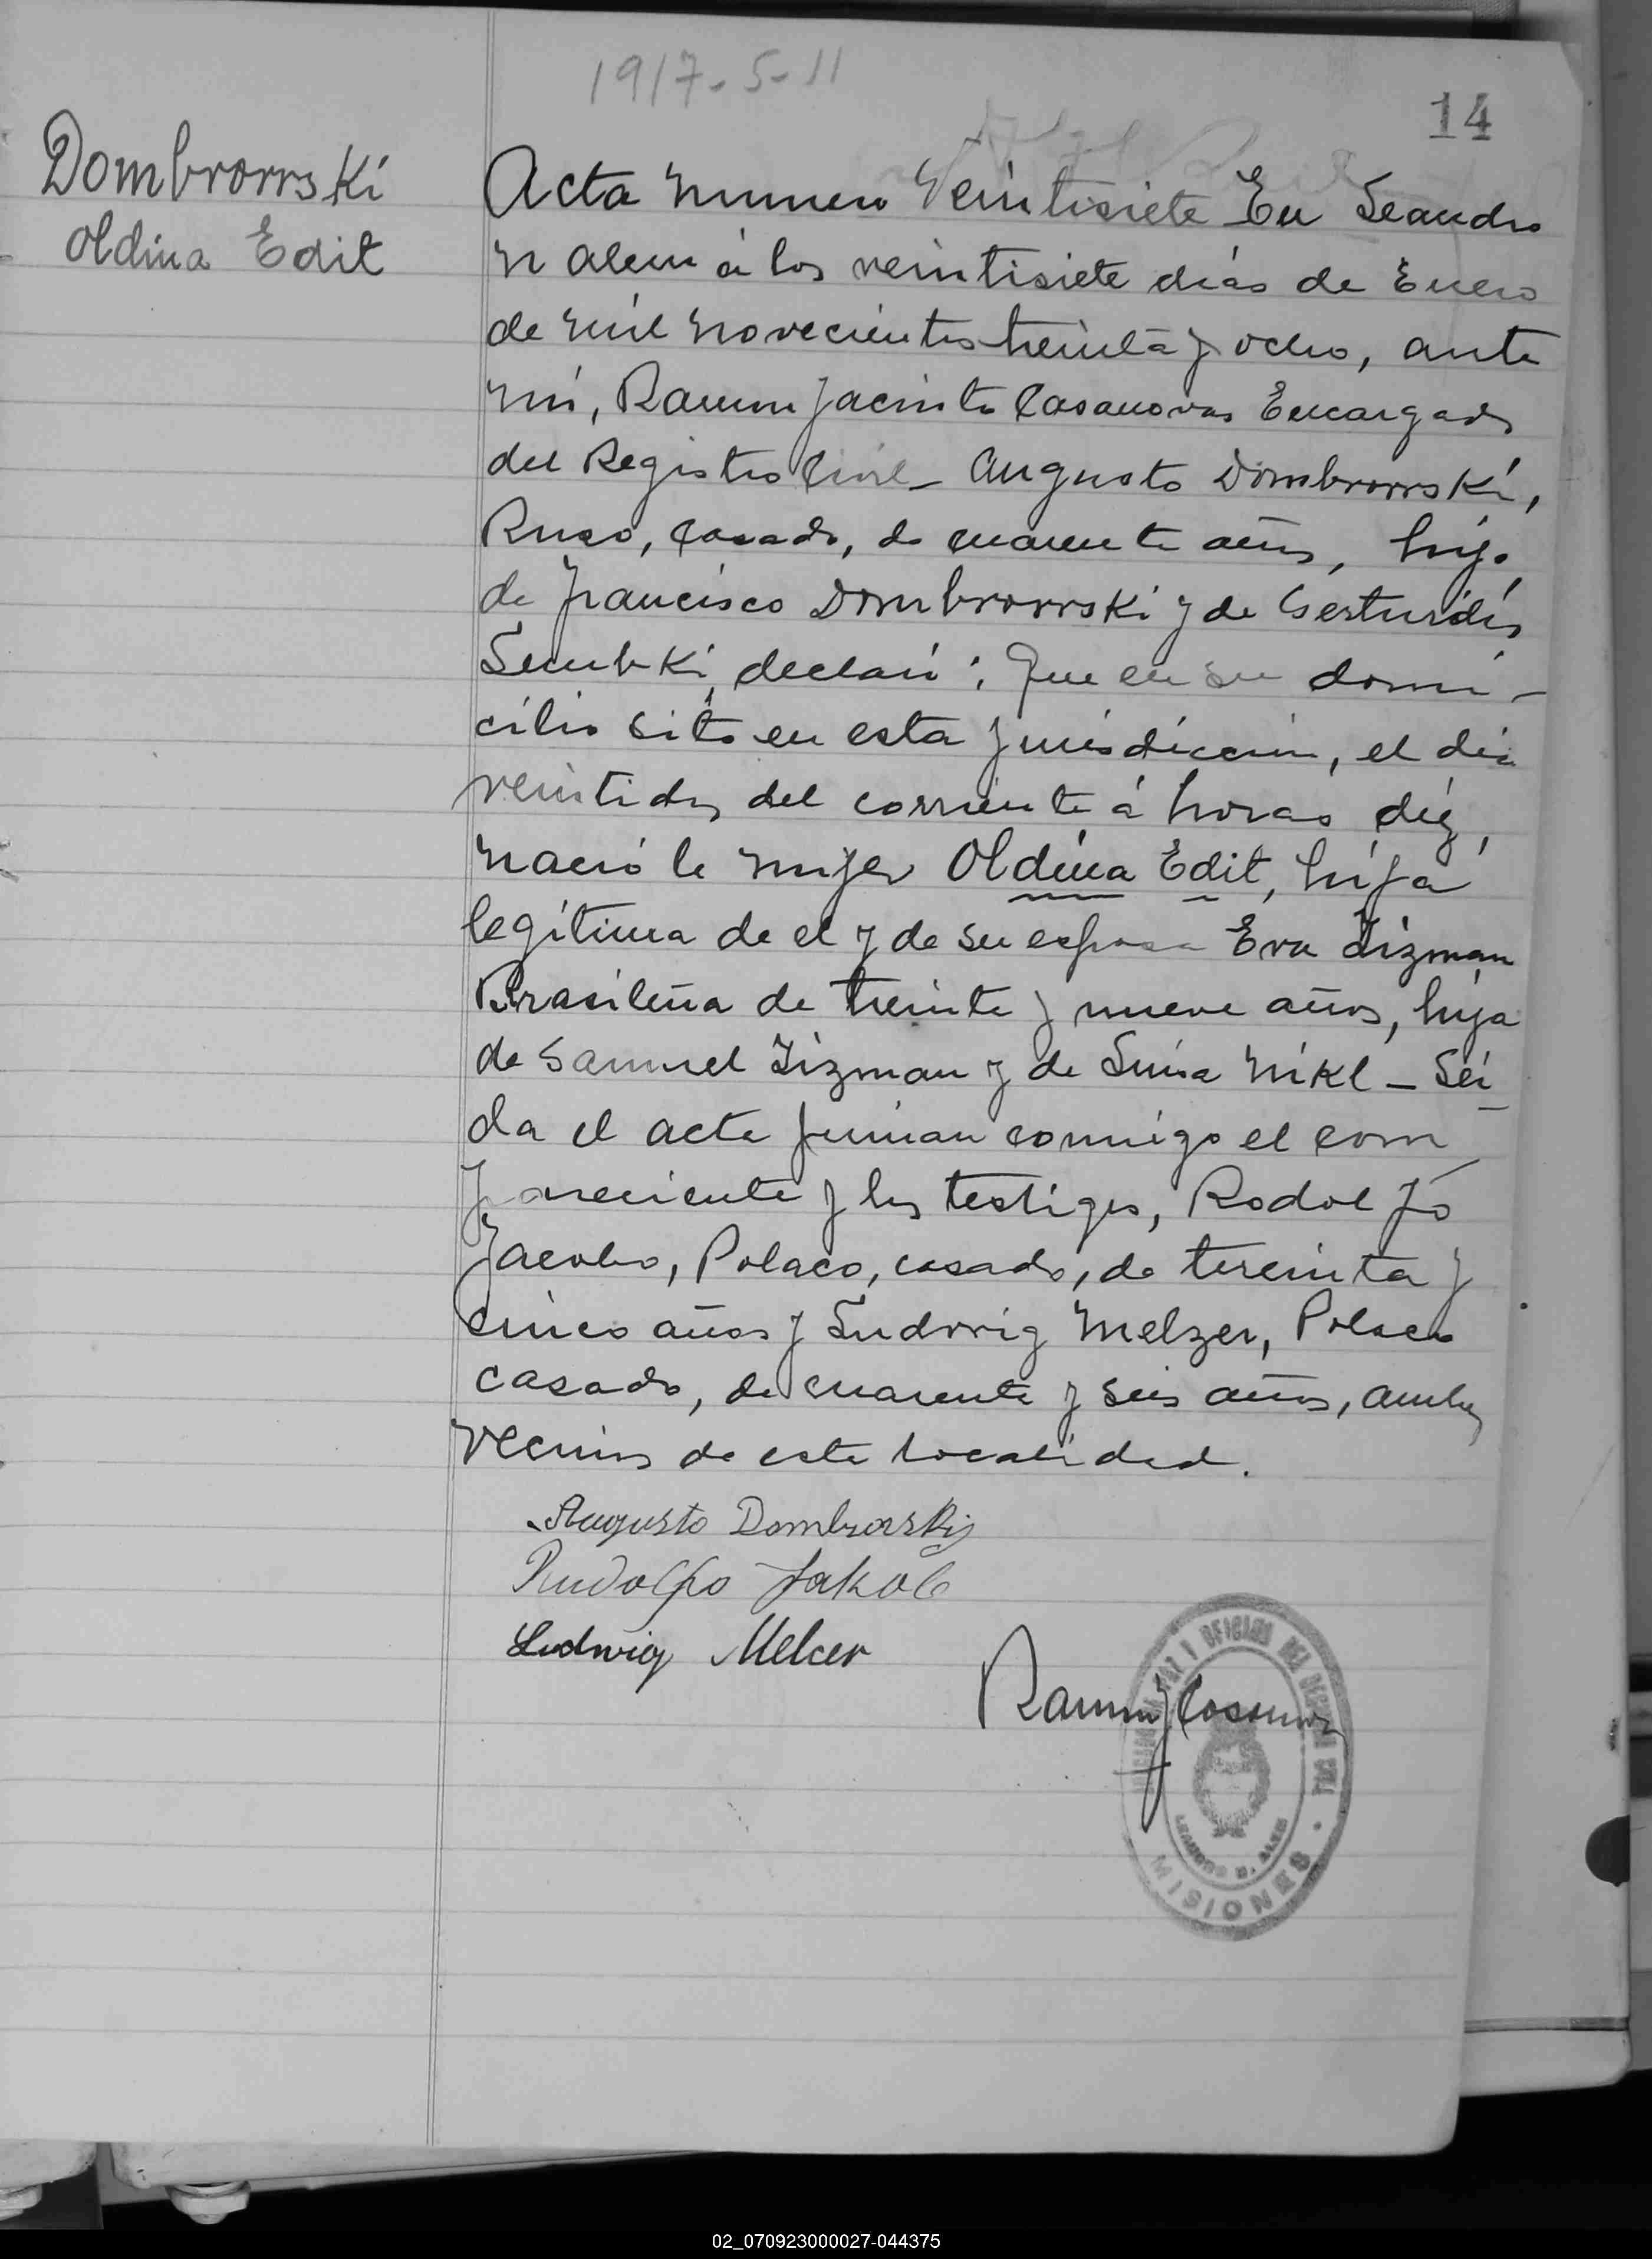 1917-5-11
14
Dombrowski
Oldina Edit
Acta numero Veintisiete En Leandro
N Alem á los veintisiete días de Enero
de mil novecientos treinta y ocho, ante
mi, Ramon Jacinto Casanovas Encargado
del Registro Civil_ Augusto Dombrowski,
Ruso, casado, de cuarenta años, hijo
de Francisco Dombrowski y de Gerturdis
declaró: Que en su domi-
cilio sito en esta jurisdiccion, el dia
veintidos del corriente á horas diez,
nació la mujer Oldina Edit, hija
legítima de el y de su esposa Eva Lizman
Brasileña de treinta y nueve años, hija
de Samuel Lizman y de Nikl_ Lei
da el acta firman conmigo el com
pareciente y los testigos, Rodolfo
Jacobo, Polaco, casado, de tereinta y
cinco años y Ludwig Melzer, Polaco
casado, de cuarenta y seis años, ambos
vecinos de esta localidad.
Augusto Dombrowski
Rudolfo Jakob
Ludwig Melcer
Ramon J Casanovas
LEANDRO N. ALEM
MISIONES
02_070923000027-044375